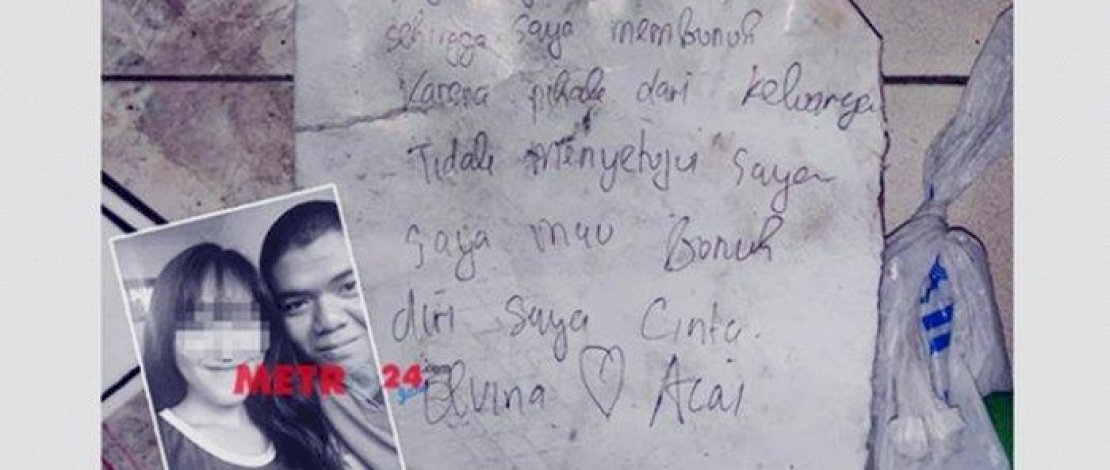 sehingga saya membunuh
Karena pihak dari keluarga
Tidak menyetujui saya
saya mau Bunuh
diri saya Cinta.
Elvina ♡ Acai
METR 24.com